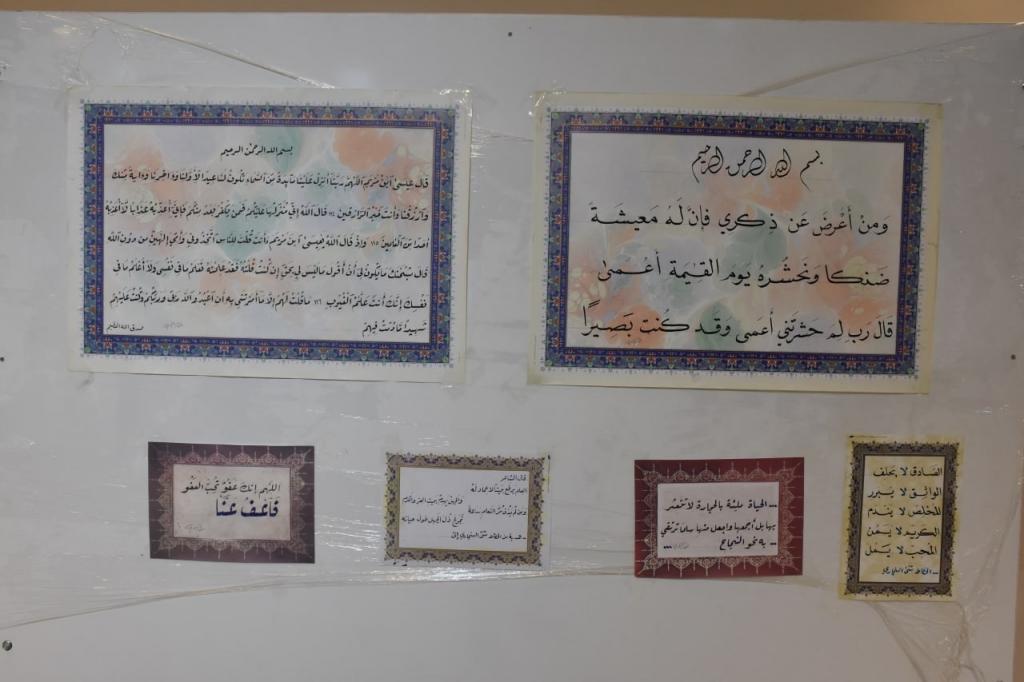 بسم الله الرحمن الرحيم
قال عيسى ابن مريم اللهم ربنا أنزل علينا مائدة من السماء تكون لنا عيدا لأولنا وءاخرنا وءاية منك
وارزقنا وأنت خير الرازقين ١١٤ قال الله إني منزلها عليكم فمن يكفر بعد منكم فإني أعذبه عذابا لا أعذبه
أحدا من العالمين ١١٥ وإذ قال الله يعيسى ابن مريم ءأنت قلت للناس اتخذوني وأمي إلهين من دون الله
قال سبحنك ما يكون لي أن أقول ما ليس لي بحق إن كنت قلته فقد علمته تعلم ما في نفسي ولا أعلم ما في
نفسك إنك أنت علم الغيوب ١١٦ ما قلت لهم إلا ما أمرتني به أن اعبدوا الله ربي وربكم وكنت عليهم
شهيدا ما دمت فيهم
صدق الله العظيم
بسم الله الرحمن الرحيم
وَمَنْ أَعْرَضَ عَن ذِكرِي فَإنَّ لَهُ مَعِيشَةً
ضَنكا ونَحْشُرهُ يَوم القِيَمة أعْمىٰ
قَالَ رَب لِمَ حَشَرتَني أعمى وَقَد كُنت بَصِيراً
اللهم إنك عفو تحب العفو
فَاعْفُ عَنَّا
قال الشاعر
العلم يرفع بيتا لا عماد له
والجهل يهدم بيت العز والكرم
ومن لم يذق مر التعلم ساعة
تجرع ذل الجهل طول حياته
... الحياة مليئة بالحجارة لا تتعثر
بها بل أجمعها وابعل منها سلما ترتقي
به نحو النجاح ...
الصادق لا يحلف
الواثق لا يبرر
المخلص لا يندم
الكريم لا يمن
المحب لا يمل